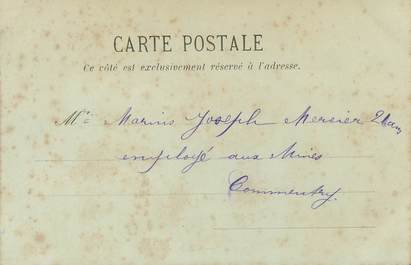 CARTE POSTALE
Ce côté est exclusivement réservé à l'adresse.
Mr. Marius Joseph Mercier
employé aux Mines
Commentry.